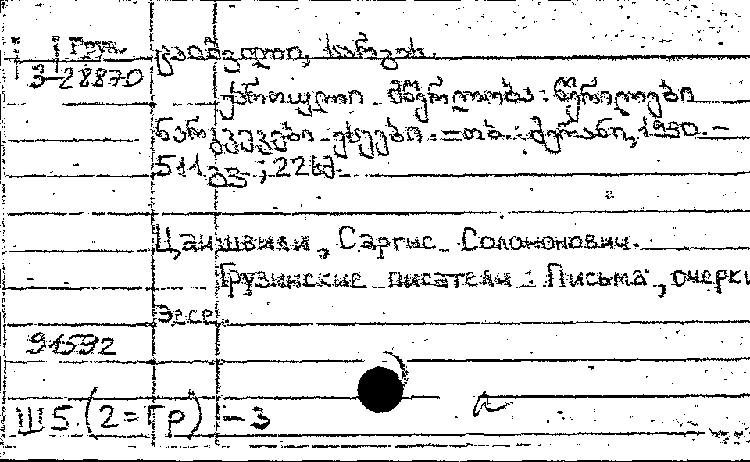 Груз. ცაიშვილი, სარგის.
3-28870
ქართული მწერლობა : წერილები
ნარკვევები ესეები. — თბ. : მერანი, 1990. –
511 გვ ; 22 სმ.
Цаишвили, Саргис Соломонович.
Грузинские писатели : Письма, очерки
Эссе.
91592
Ш5(2=Гр) – 3